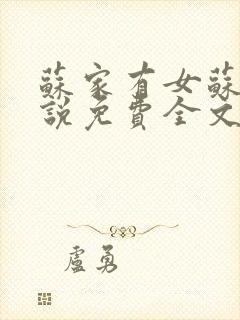 蘇家有女蘇
說免費全文
盧勇